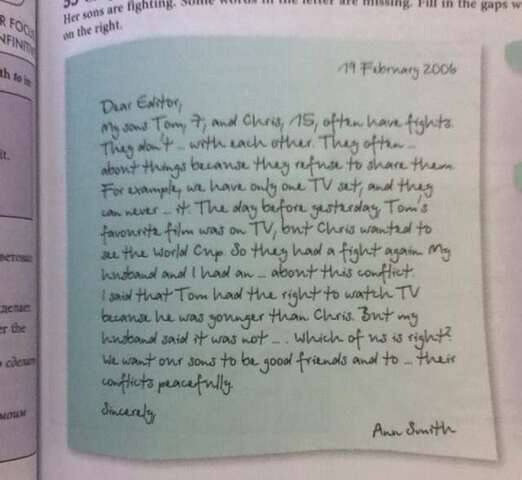 Her sons are fighting. Some words in the letter are missing. Fill in the gaps w
on the right.
R FOCU
NFINITIV
th to in
it.
ветово
делаег
er the
о сделат
моим
19 February 2006
Dear Editor,
My sons Tom, 7, and Chris, 15, often have fights.
They don't ... with each other. They often ...
about things because they refuse to share them.
For example, we have only one TV set, and they
can never ... it. The day before yesterday, Tom's
favourite film was on TV, but Chris wanted to
see the World Cup. So they had a fight again. My
husband and I had an ... about this conflict.
I said that Tom had the right to watch TV
because he was younger than Chris. But my
husband said it was not ... . Which of us is right?
We want our sons to be good friends and to ... their
conflicts peacefully.
Sincerely,
Ann Smith